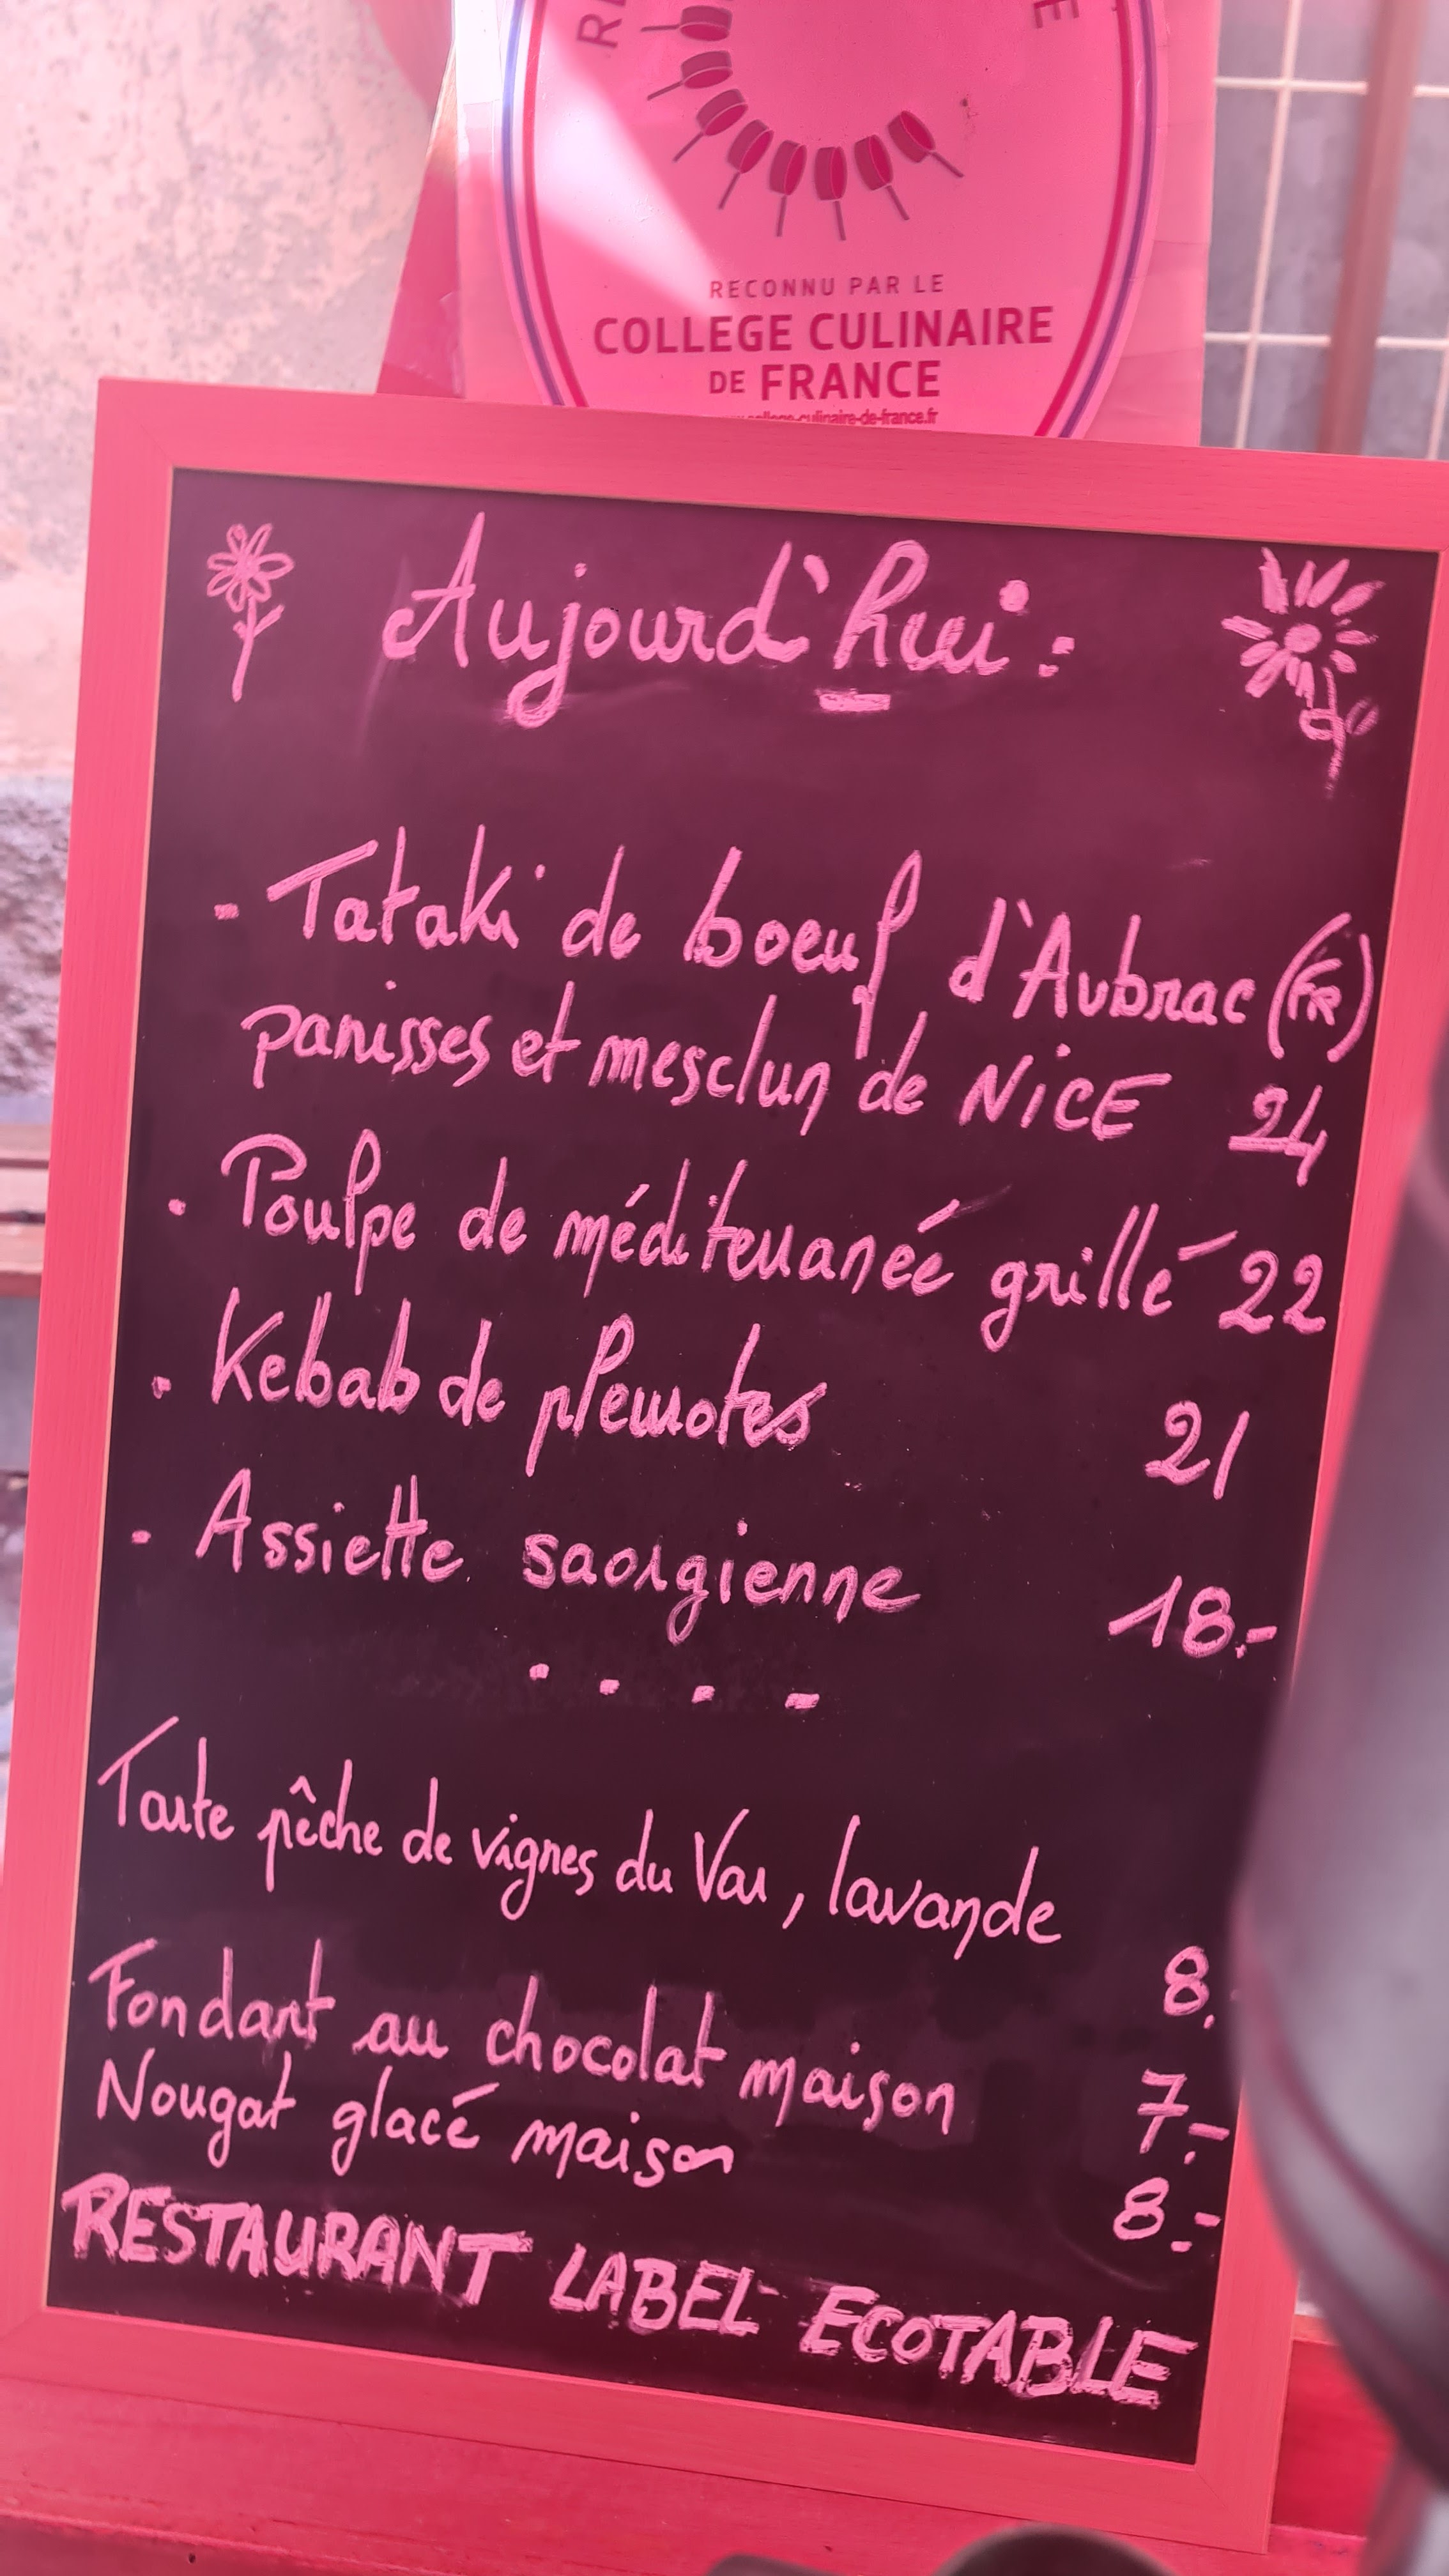 RECONNU PAR LE
COLLEGE CULINAIRE
DE FRANCE
college-culinaire-de-france.fr
Aujourd'hui :
- Tataki de boeuf d'Aubrac (FR)
panisses et mesclun de NiCE 24
- Poulpe de méditerranée grillé 22
- Kebab de pleurotes 21
- Assiette saorgienne 18.-
- - - -
Tarte pêche de vignes du Var, lavande
8.
Fondant au chocolat maison 7.-
Nougat glacé maison 8.-
RESTAURANT LABEL ECOTABLE